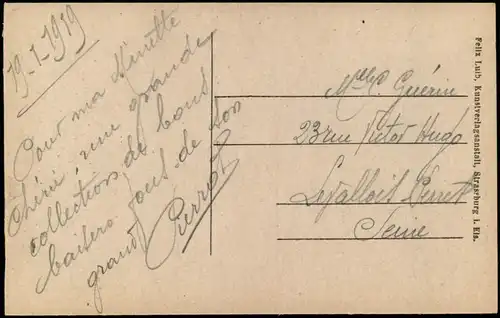 19-1-1919
Pour ma Minette
Chérie une grande
collection de bons
baisers fous de son
grand Pierrot
Mlle C. Guérin
23 rue Victor Hugo
Levallois Perret
Seine
Felix Luib, Kunstverlagsanstalt, Strassburg i. Els.